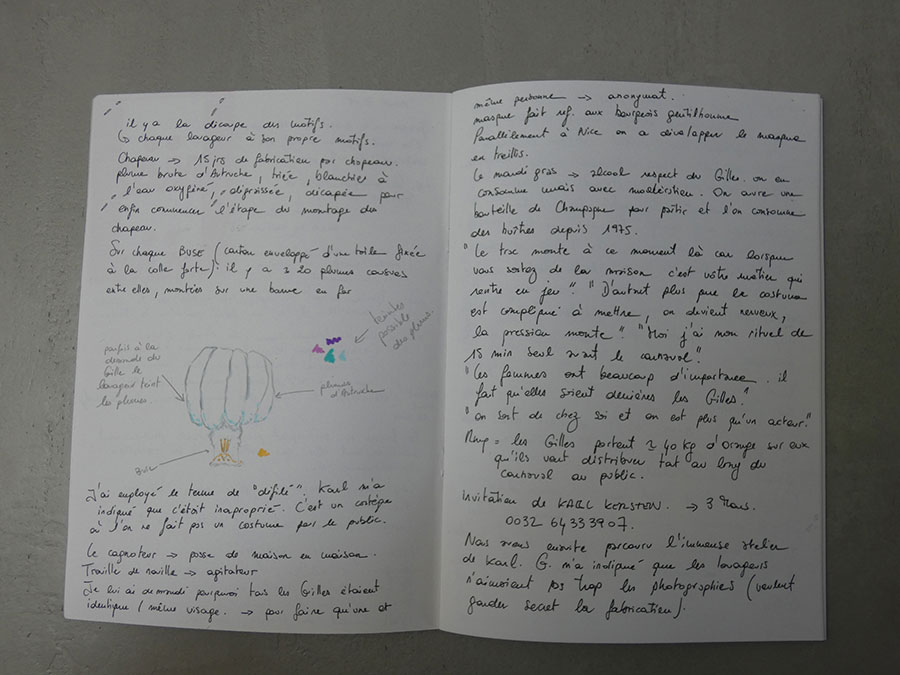 il y a la découpe des motifs.
↳ chaque louageur à son propre motifs.
Chapeau → 15 jrs de fabrication par chapeau.
plume brute d'Autruche, triée, blanchie à
l'eau oxyginé, dégraissée, décapée pour
enfin commencer l'étape du montage du
chapeau.
Sur chaque BUSE (carton enveloppé d'une toile fixée
à la colle forte): il y a ± 20 plumes cousues
entre elles, montées sur une barre en fer
teintes
possible
des plumes.
parfois à la
demande du
Gille le
louageur teint
les plumes.
plumes
d'Autruche
Buse
J'ai employé le terme de "défilé". Karl m'a
indiqué que c'était inaproprié. C'est un cortège
où l'on ne fait pas un costume pour le public.
Le cagnoteur → passe de maison en maison.
→ agitateur
Je lui ai demandé pourquoi tous les Gilles étaient
identique (même visage. → pour faire qu'une et
même personne → anonymat.
masque fait ref. aux bourgeois gentilhomme
Parallèlement à Nice on a développer le masque
en treillis.
Le mardi gras → alcool respect du Gille. on en
consomme mais avec modération. On ouvre une
bouteille de Champagne pour partir et l'on consomme
des huîtres depuis 1975.
"Le trac monte à ce moment là car lorsque
vous sortez de la maison c'est votre métier qui
rentre en jeu". "D'autant plus que le costume
est compliqué à mettre, on devient nerveux,
la pression monte" "Moi j'ai mon rituel de
15 min seul avant le carnaval".
"Les femmes ont beaucoup d'importance. il
faut qu'elles soient derrières les Gilles."
"on sort de chez soi et on est plus qu'un acteur."
Rmq = les Gilles portent ≃ 40 kg d'orange sur eux
qu'ils vont distribuer tout au long du
carnaval au public.
Invitation de KARL KERSTEN. → 3 Mars.
0032 64333907.
Nous avons ensuite parcouru l'immense atelier
de Karl. G. m'a indiqué que les louageurs
n'aimaient pas trop les photographies (veulent
garder secret la fabrication).